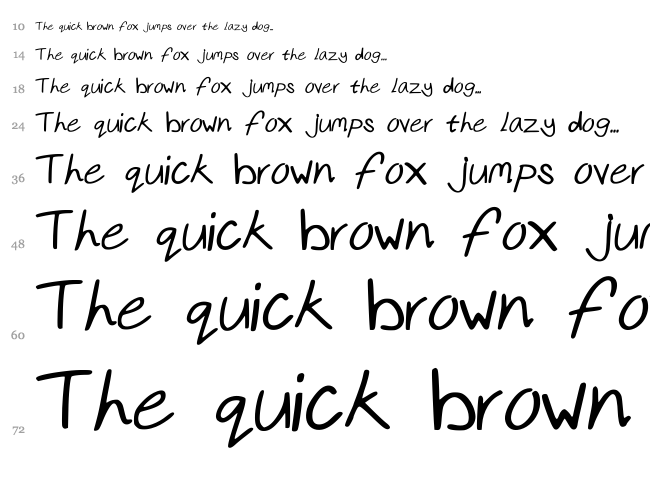 10 The quick brown fox jumps over the lazy dog...
14 The quick brown fox jumps over the lazy dog...
18 The quick brown fox jumps over the lazy dog...
24 The quick brown fox jumps over the lazy dog...
36 The quick brown fox jumps over
48 The quick brown fox jur
60 The quick brown fo
72 The quick brown